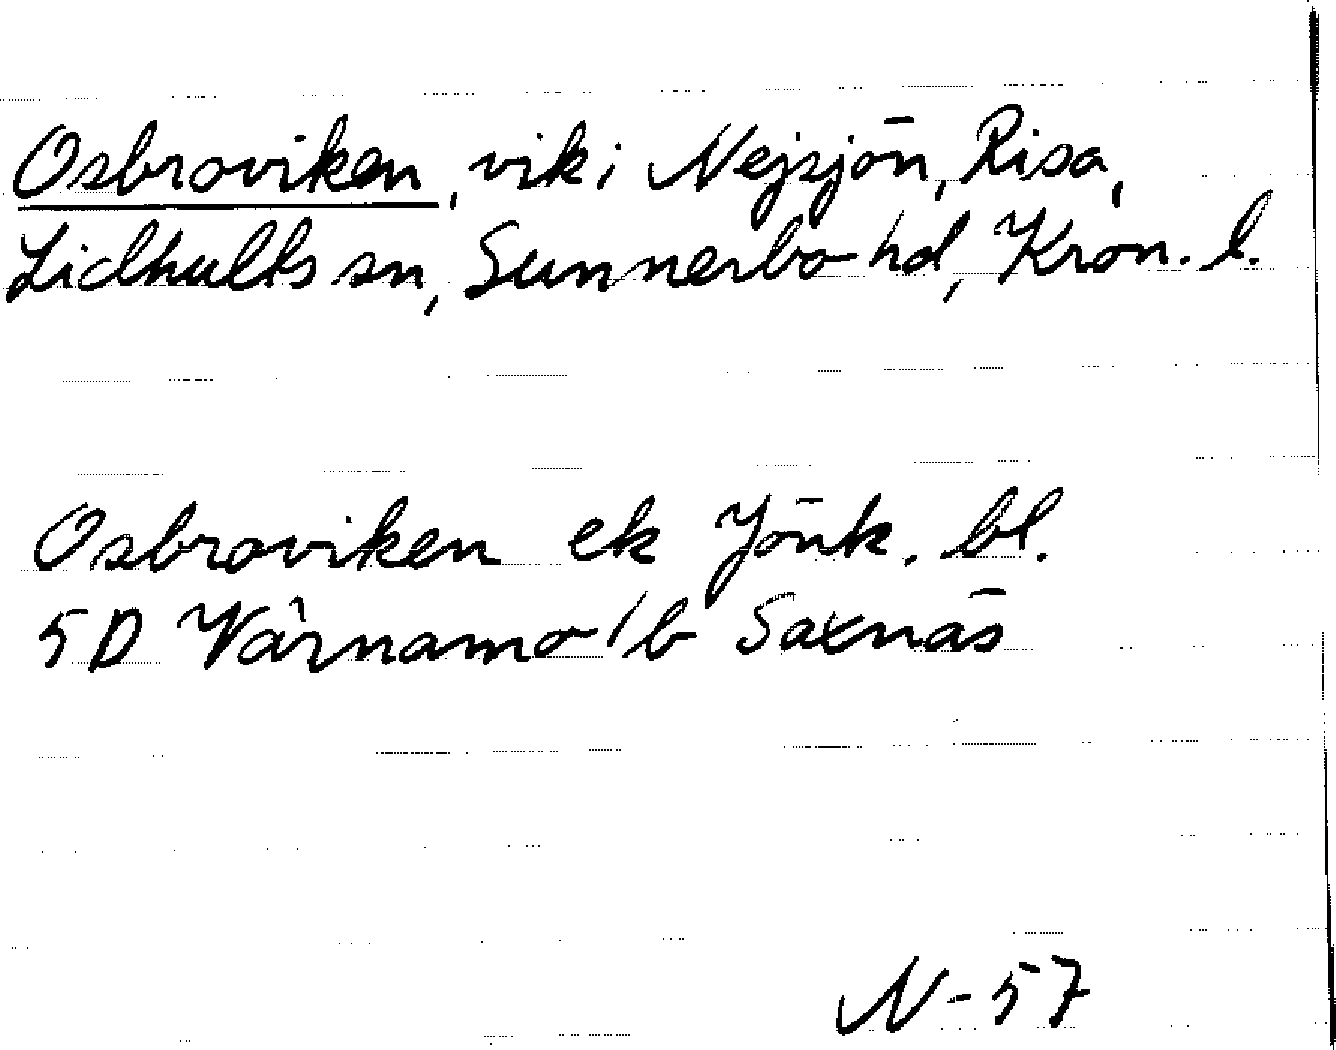 Osbroviken, vik i Nejsjön, Risa,
Lidhults sn, Sunnerbo hd, Kron. l.
Osbroviken ek Jönk. bl.
5D Värnamo 1b Saxnäs
N-57